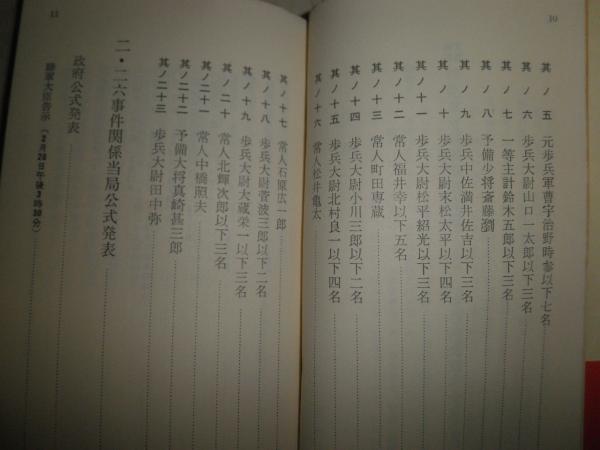 10
其ノ五 元歩兵軍曹宇治野時参以下七名
其ノ六 歩兵大尉山口一太郎以下三名
其ノ七 一等主計鈴木五郎以下三名
其ノ八 予備少将斎藤瀏
其ノ九 歩兵中佐満井佐吉以下三名
其ノ十 歩兵大尉末松太平以下四名
其ノ十一 歩兵大尉松平紹光以下三名
其ノ十二 常人福井幸以下五名
其ノ十三 常人町田専蔵
其ノ十四 歩兵大尉小川三郎以下二名
其ノ十五 歩兵大尉北村良一以下四名
其ノ十六 常人松井亀太
11
其ノ十七 常人石原広一郎
其ノ十八 歩兵大尉菅波三郎以下二名
其ノ十九 歩兵大尉大蔵栄一以下三名
其ノ二十 常人北輝次郎以下三名
其ノ二十一 常人中橋照夫
其ノ二十二 予備大将真崎甚三郎
其ノ二十三 歩兵大尉田中弥
二・二六事件関係当局公式発表
政府公式発表
陸軍大臣告示(2月26日午後3時30分)